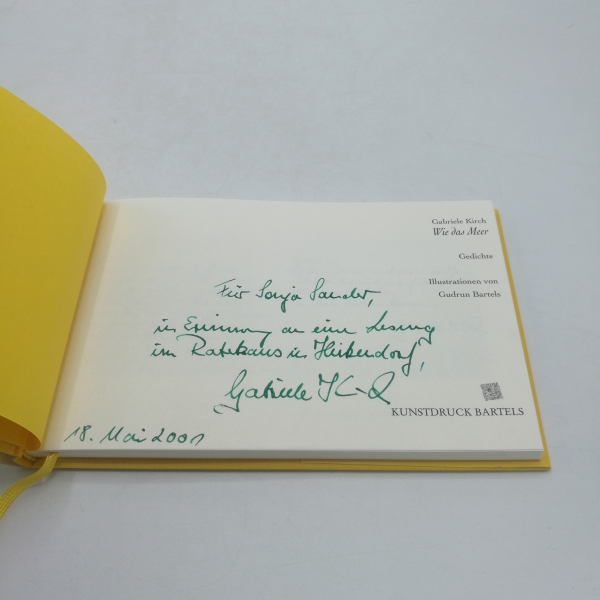 Gabriele Kirch
Wie das Meer
Gedichte
Illustrationen von
Gudrun Bartels
Für Sonja Sander,
in Erinnerung an eine Lesung
im Rathaus in
Gabriele
18. Mai 2001
KUNSTDRUCK BARTELS